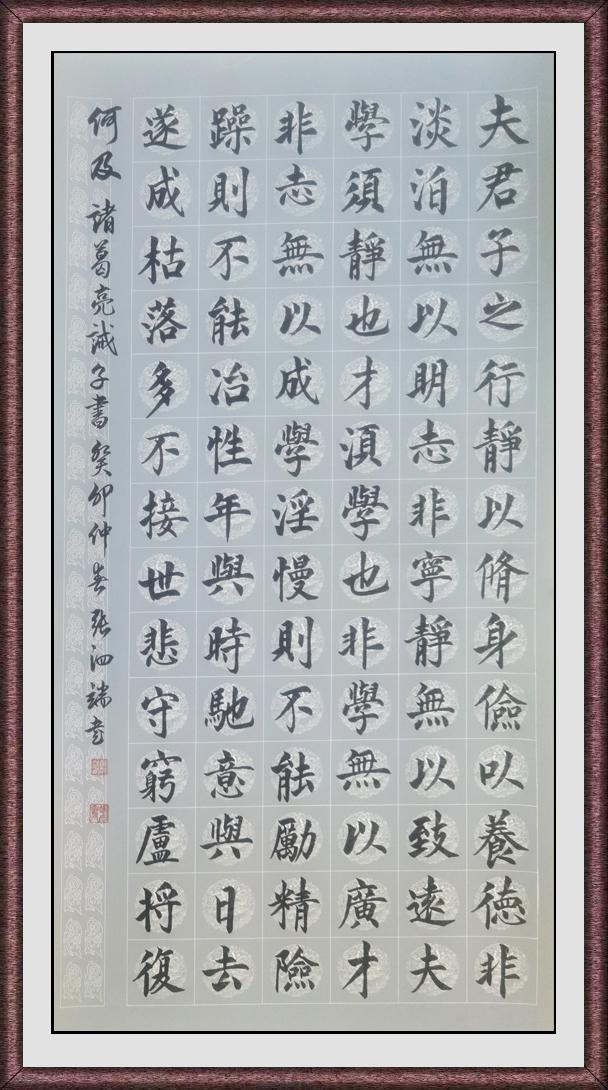 夫君子之行靜以脩身儉以養德非
淡泊無以明志非寧靜無以致遠夫
學須靜也才須學也非學無以廣才
非志無以成學淫慢則不能勵精險
躁則不能冶性年與時馳意與日去
遂成枯落多不接世悲守窮盧將復
何及 諸葛亮誡子書 癸卯仲春 張泗端書